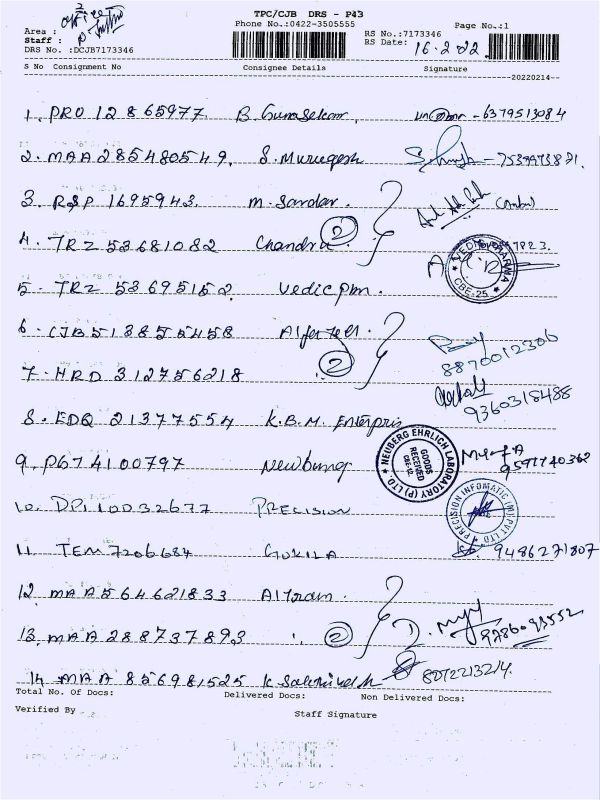 TPC/CJB DRS - P43
Phone No.:0422-3505555
Area :
Staff :
DRS No. :DCJB7173346
RS No.:7173346
RS Date: 16.2.22
Page No.:1
S No Consignment No Consignee Details Signature
20220214
1. PRO 12865977 B. Gunasekar, - 6379513084
2. MAA 285480549. S. Murugesh
3. RSP 1695943. M. Sardar.
4. TRZ 53681082 Chandra (2)
5. TRZ 53695152. Vedicpm.
VEDIC PHARMA
CBE-25
6. CJB 513855458 Alfa Tech.
8870012306
7. HRD 312756218 (2)
9360318488
8. EDQ 21377554 K.B.M. Enterpris
9. P674100797 Newburg
NEUBERG EHRLICH LABORATORY (P) LTD.
GOODS RECEIVED
CBE-12
9597740362
10. DPI 10032677 PRECISION
PRECISION INFOMATIC (M) PVT LTD
11. TEM 7206684 GOKILA 9486271807
12. MAA 564621833
13. MAA 288737893 (2)
14. MAA 856981525 8012213214.
Total No. Of Docs: Delivered Docs: Non Delivered Docs:
Verified By Staff Signature